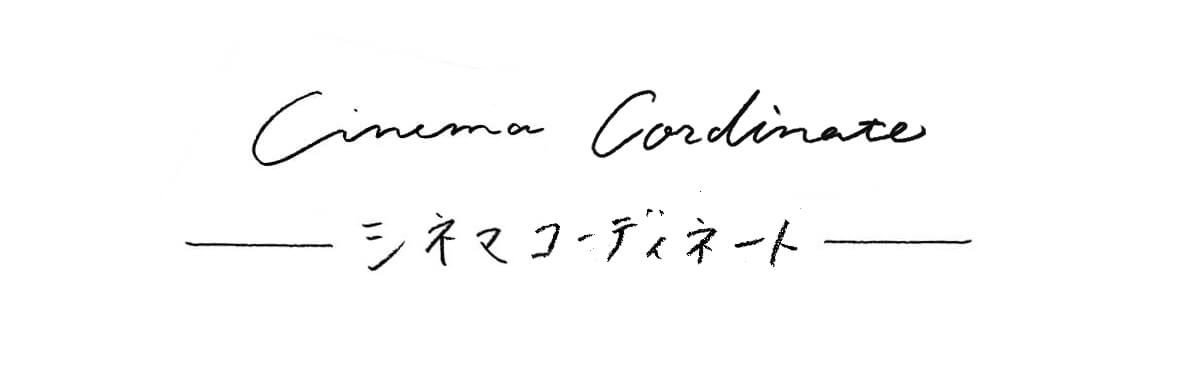 Cinema Cordinate
シネマコーディネート